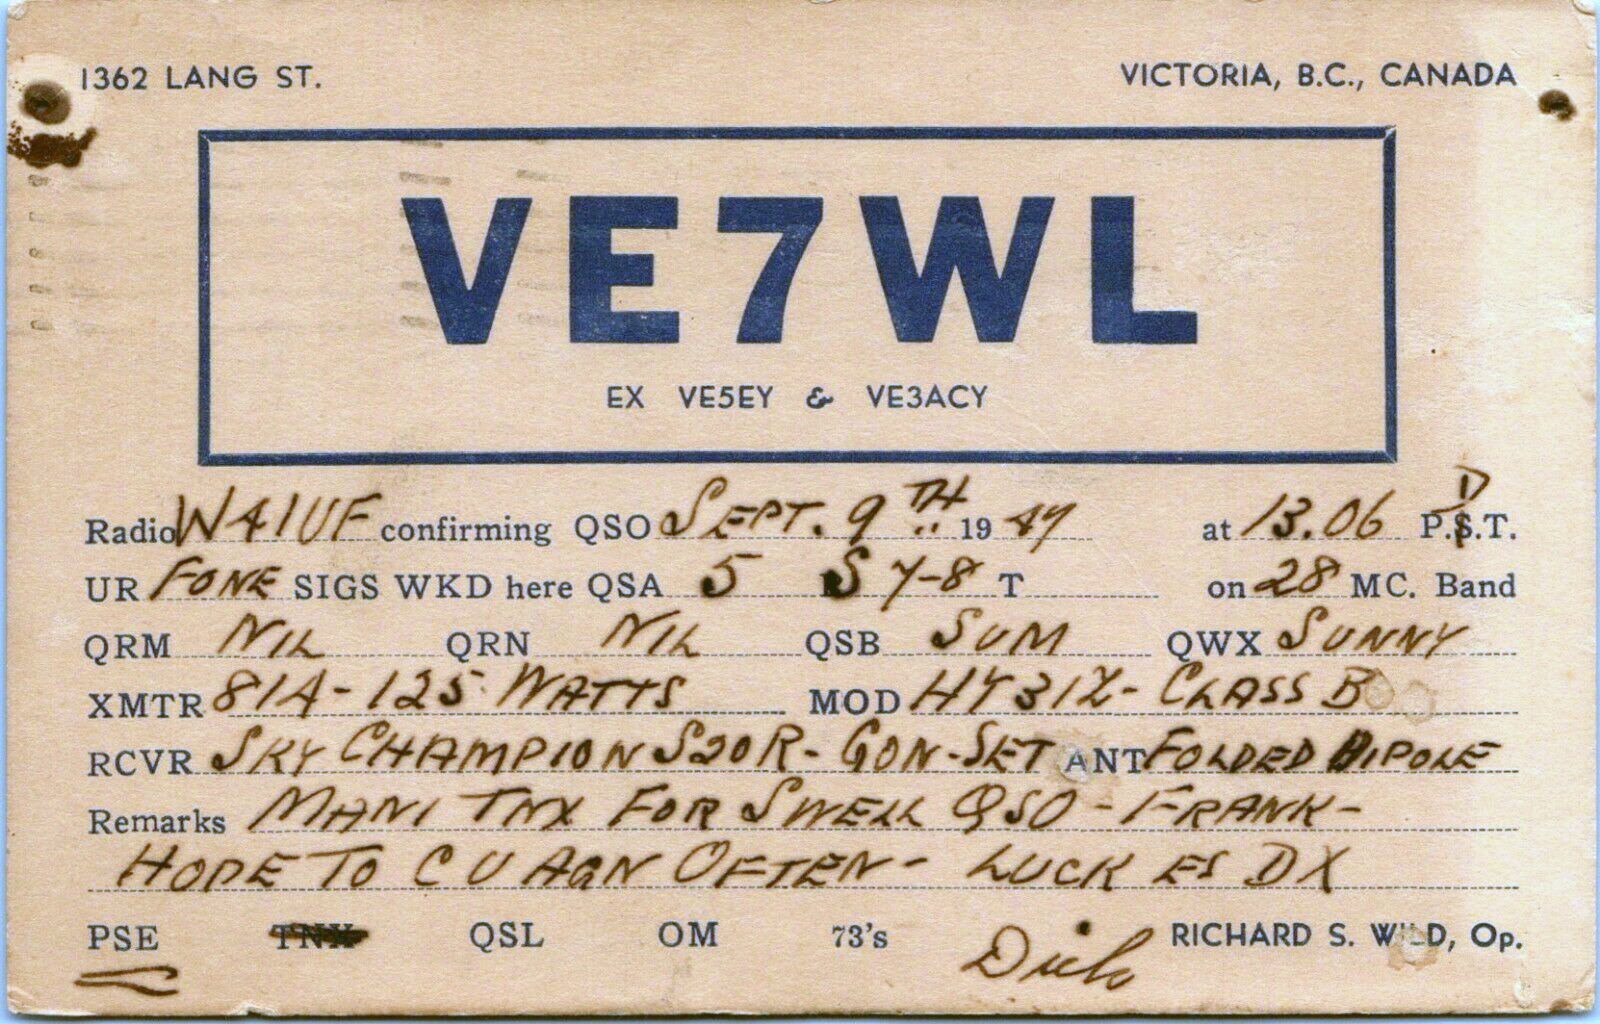 1362 LANG ST. VICTORIA, B.C., CANADA
VE7WL
EX VE5EY & VE3ACY
Radio W4IUF confirming QSO SEPT. 9TH 1947 at 13.06 P.D.T.
UR FONE SIGS WKD here QSA 5 S 7-8 T on 28 MC. Band
QRM NIL QRN NIL QSB SUM QWX SUNNY
XMTR 814 - 125 WATTS MOD HY31Z - CLASS B
RCVR SKY CHAMPION S20R - GON-SET ANT FOLDED DIPOLE
Remarks MANI TNX FOR SWELL QSO - FRANK -
HOPE TO C U AGN OFTEN - LUCK ES DX
PSE TNX QSL OM 73's Dick RICHARD S. WILD, Op.